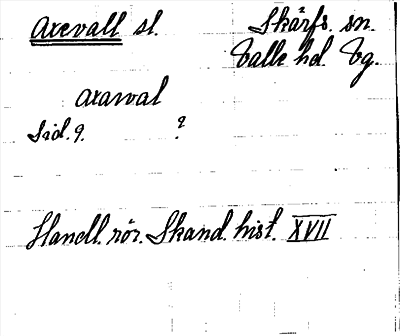 Axevall sl. Skärfs. sn.
Valle hd. Vg.
axawal
Sid. 9. ?
Handl. rör. Skand. hist. XVII